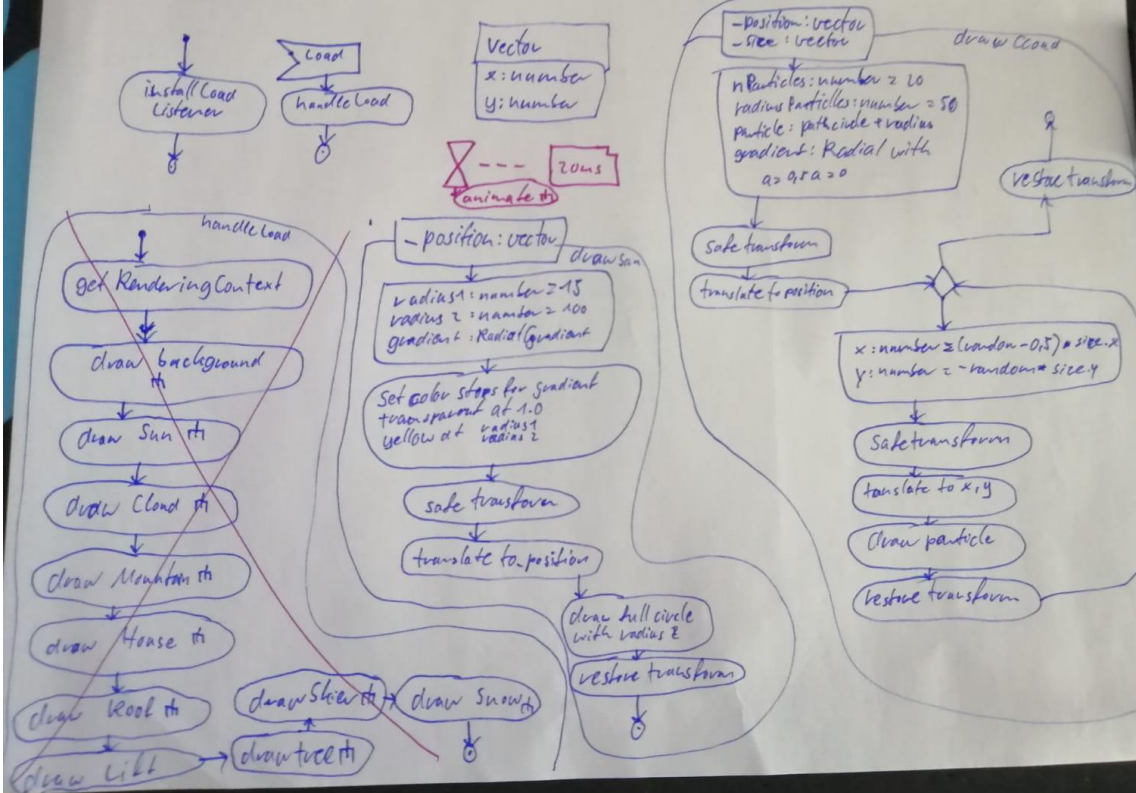 install Load
Listener
Load
handleLoad
Vector
x: number
y: number
20ms
animate
handleLoad
get RenderingContext
draw background
draw Sun
draw Cloud
draw Mountain
draw House
draw Roof
draw Lift
draw tree
draw Skier
draw Snow
- position: vector
draw sun
radius1: number = 15
radius2: number = 100
gradient: RadialGradient
Set color stops for gradient
transparent at 1.0
yellow at radius1
radius2
safe transform
translate to position
draw full circle
with radius 2
restore transform
- position: vector
- size: vector
draw Cloud
nParticles: number = 20
radiusParticles: number = 50
particle: path circle + radius
gradient: Radial with
a = 0,5 a = 0
safe transform
translate to position
restore transform
x: number = (random - 0,5) * size.x
y: number = - random * size.y
Safe transform
translate to x, y
draw particle
restore transform